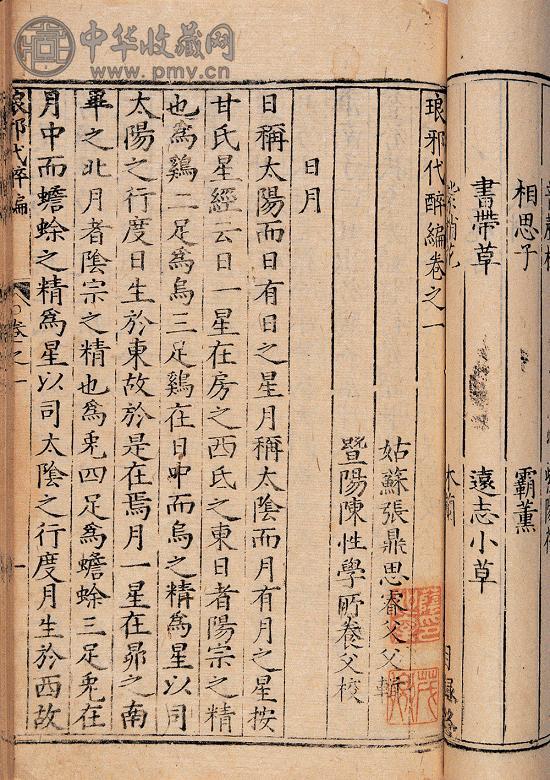 中华收藏网
www.pmv.cn
相思子
霸薰
書帶草
遠志小草
木蘭
琅邪代醉編卷之一
姑蘇張鼎思睿父父輯
暨陽陳性學所養父校
日月
日稱太陽而日有日之星月稱太陰而月有月之星按
甘氏星經云日一星在房之西氐之東日者陽宗之精
也為鷄二足為烏三足鷄在日中而烏之精為星以司
太陽之行度日生於東故於是在焉月一星在昴之南
畢之北月者陰宗之精也為兎四足為蟾蜍三足兎在
月中而蟾蜍之精為星以司太陰之行度月生於西故
琅邪代醉編
卷之一
一